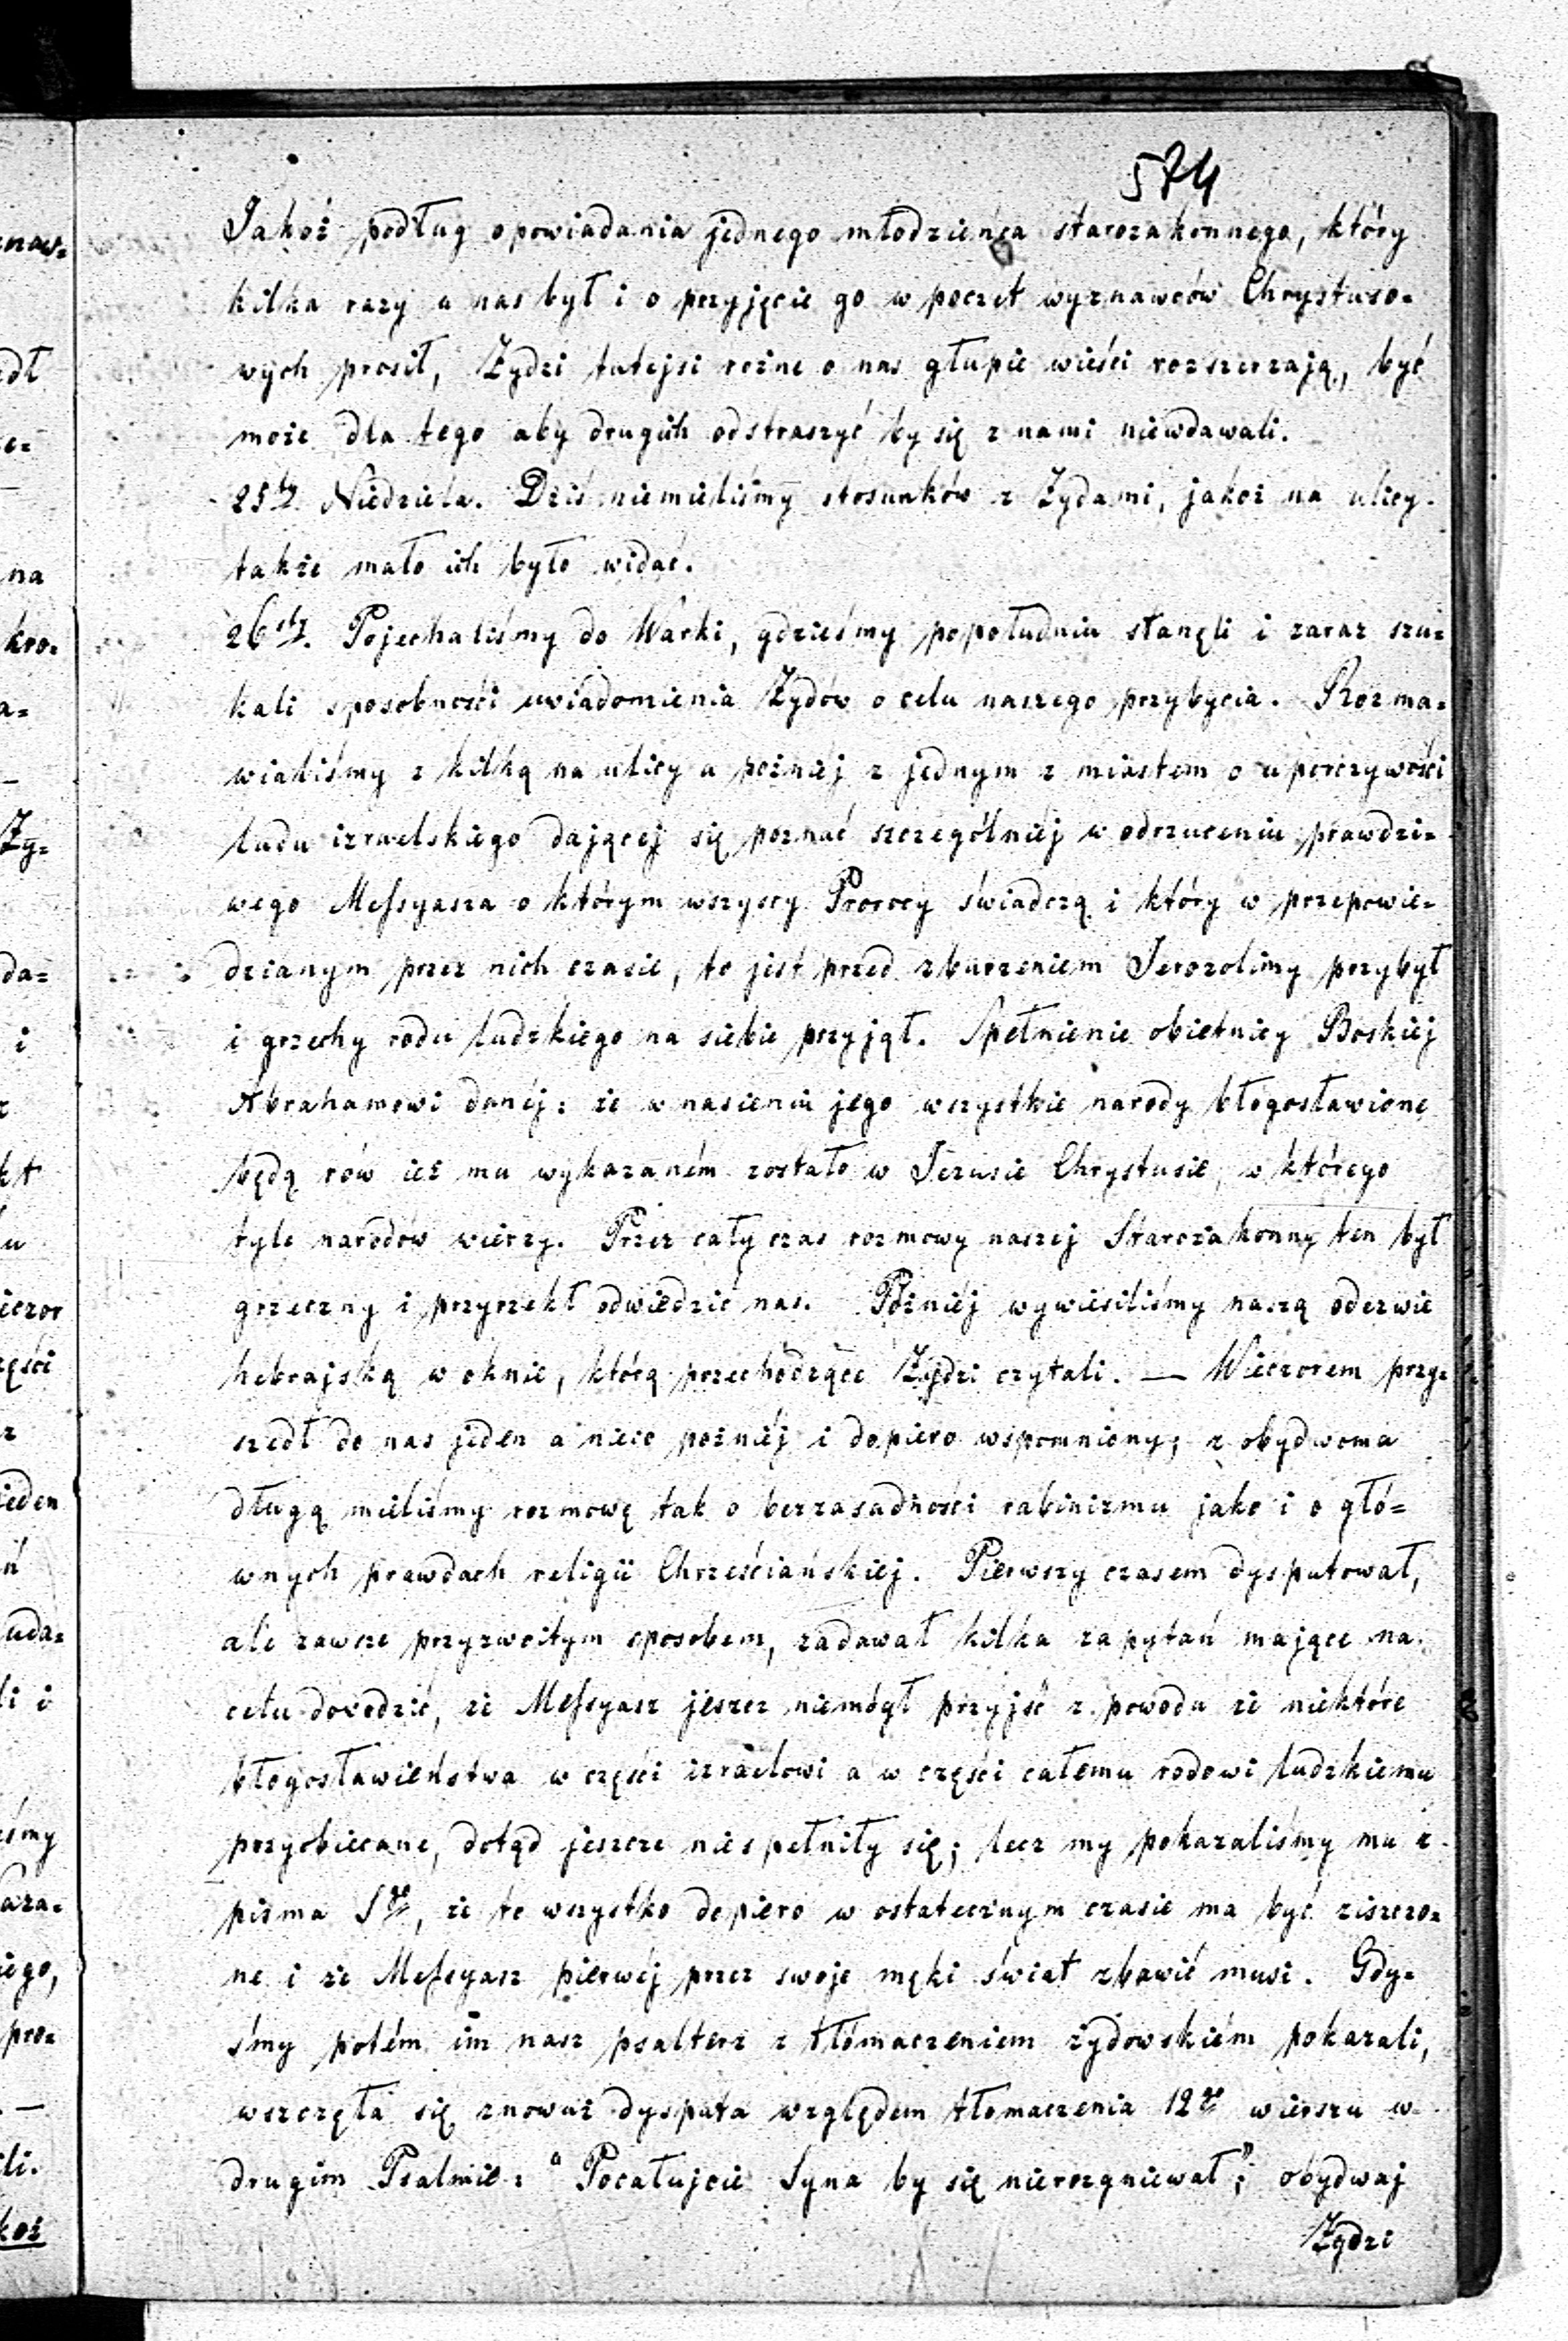 574
Jakoż podług opowiadania jednego młodzieńca starozakonnego, który
kilka razy u nas był i o przyjęcie go w poczet wyznawców Chrystuso=
wych prosił, Żydzi tutejsi rożne o nas głupie wieści rozszerzają, być
może dla tego aby drugich odstraszyć by się z nami niewdawali.
25ty. Niedziela. Dziś niemieliśmy stosunków z Żydami, jakoż na ulicy
także mało ich było widać.
26sty. Pojechaliśmy do Warki, gdzieśmy popołudniu stanęli i zaraz szu=
kali sposobności uwiadomienia Żydów o celu naszego przybycia. Rozma=
wialiśmy z kilką na ulicy a poźniej z jednym z miastem o uporczywości
ludu izraelskiego dającej się poznać szczególniej w odrzuceniu prawdzi=
wego Messyasza o którym wszyscy Prorocy świadczą i który w przepowie=
dzianym przez nich czasie, to jest przed zburzeniem Jerozolimy przybył
i grzechy rodu ludzkiego na siebie przyjął. Spełnienie obietnicy Boskiej
Abrahamowi danéj: że w nasieniu jego wszystkie narody błogosławione
będą rów ież mu wykazaném zostało w Jezusie Chrystusie, w którego
tyle narodów wierzy. Przez cały czas rozmowy naszej Starozakonny ten był
grzeczny i przyrzekł odwiedzić nas. Poźniéj wywiesiliśmy naszą odezwie
hebrajską w oknie, którą przechodzące Żydzi czytali. — Wieczorem przy=
szedł do nas jeden a nieco poźniéj i dopiero wspomniony; z obydwoma
długą mieliśmy rozmowę tak o bezzasadności rabinizmu jako i o głó=
wnych prawdach religii Chrześciańskiej. Pierwszy czasem dysputował,
ale zawsze przyzwoitym sposobem, zadawał kilka zapytań mające na
celu dowodzić, że Messyasz jeszcz niemógł przyjść z powodu że niektóre
błogosławieństwa w części izraelowi a w części całemu rodowi ludzkiemu
przyobiecane, dotąd jeszcze niespełniły się; lecz my pokazaliśmy mu z
pisma Sgo, że to wszystko dopiero w ostatecznym czasie ma być ziszczo=
ne i że Messyasz pierwéj przez swoje męki świat zbawić musi. Gdy=
śmy potém im nasz psalterz z tłómaczeniem żydowskiém pokazali,
wszczęła się znowuż dysputa względem tłomaczenia 12go wierszu w
drugim Psalmie: "Pocałujcie Syna by się nierozgniewał"; obydwaj
Żydzi